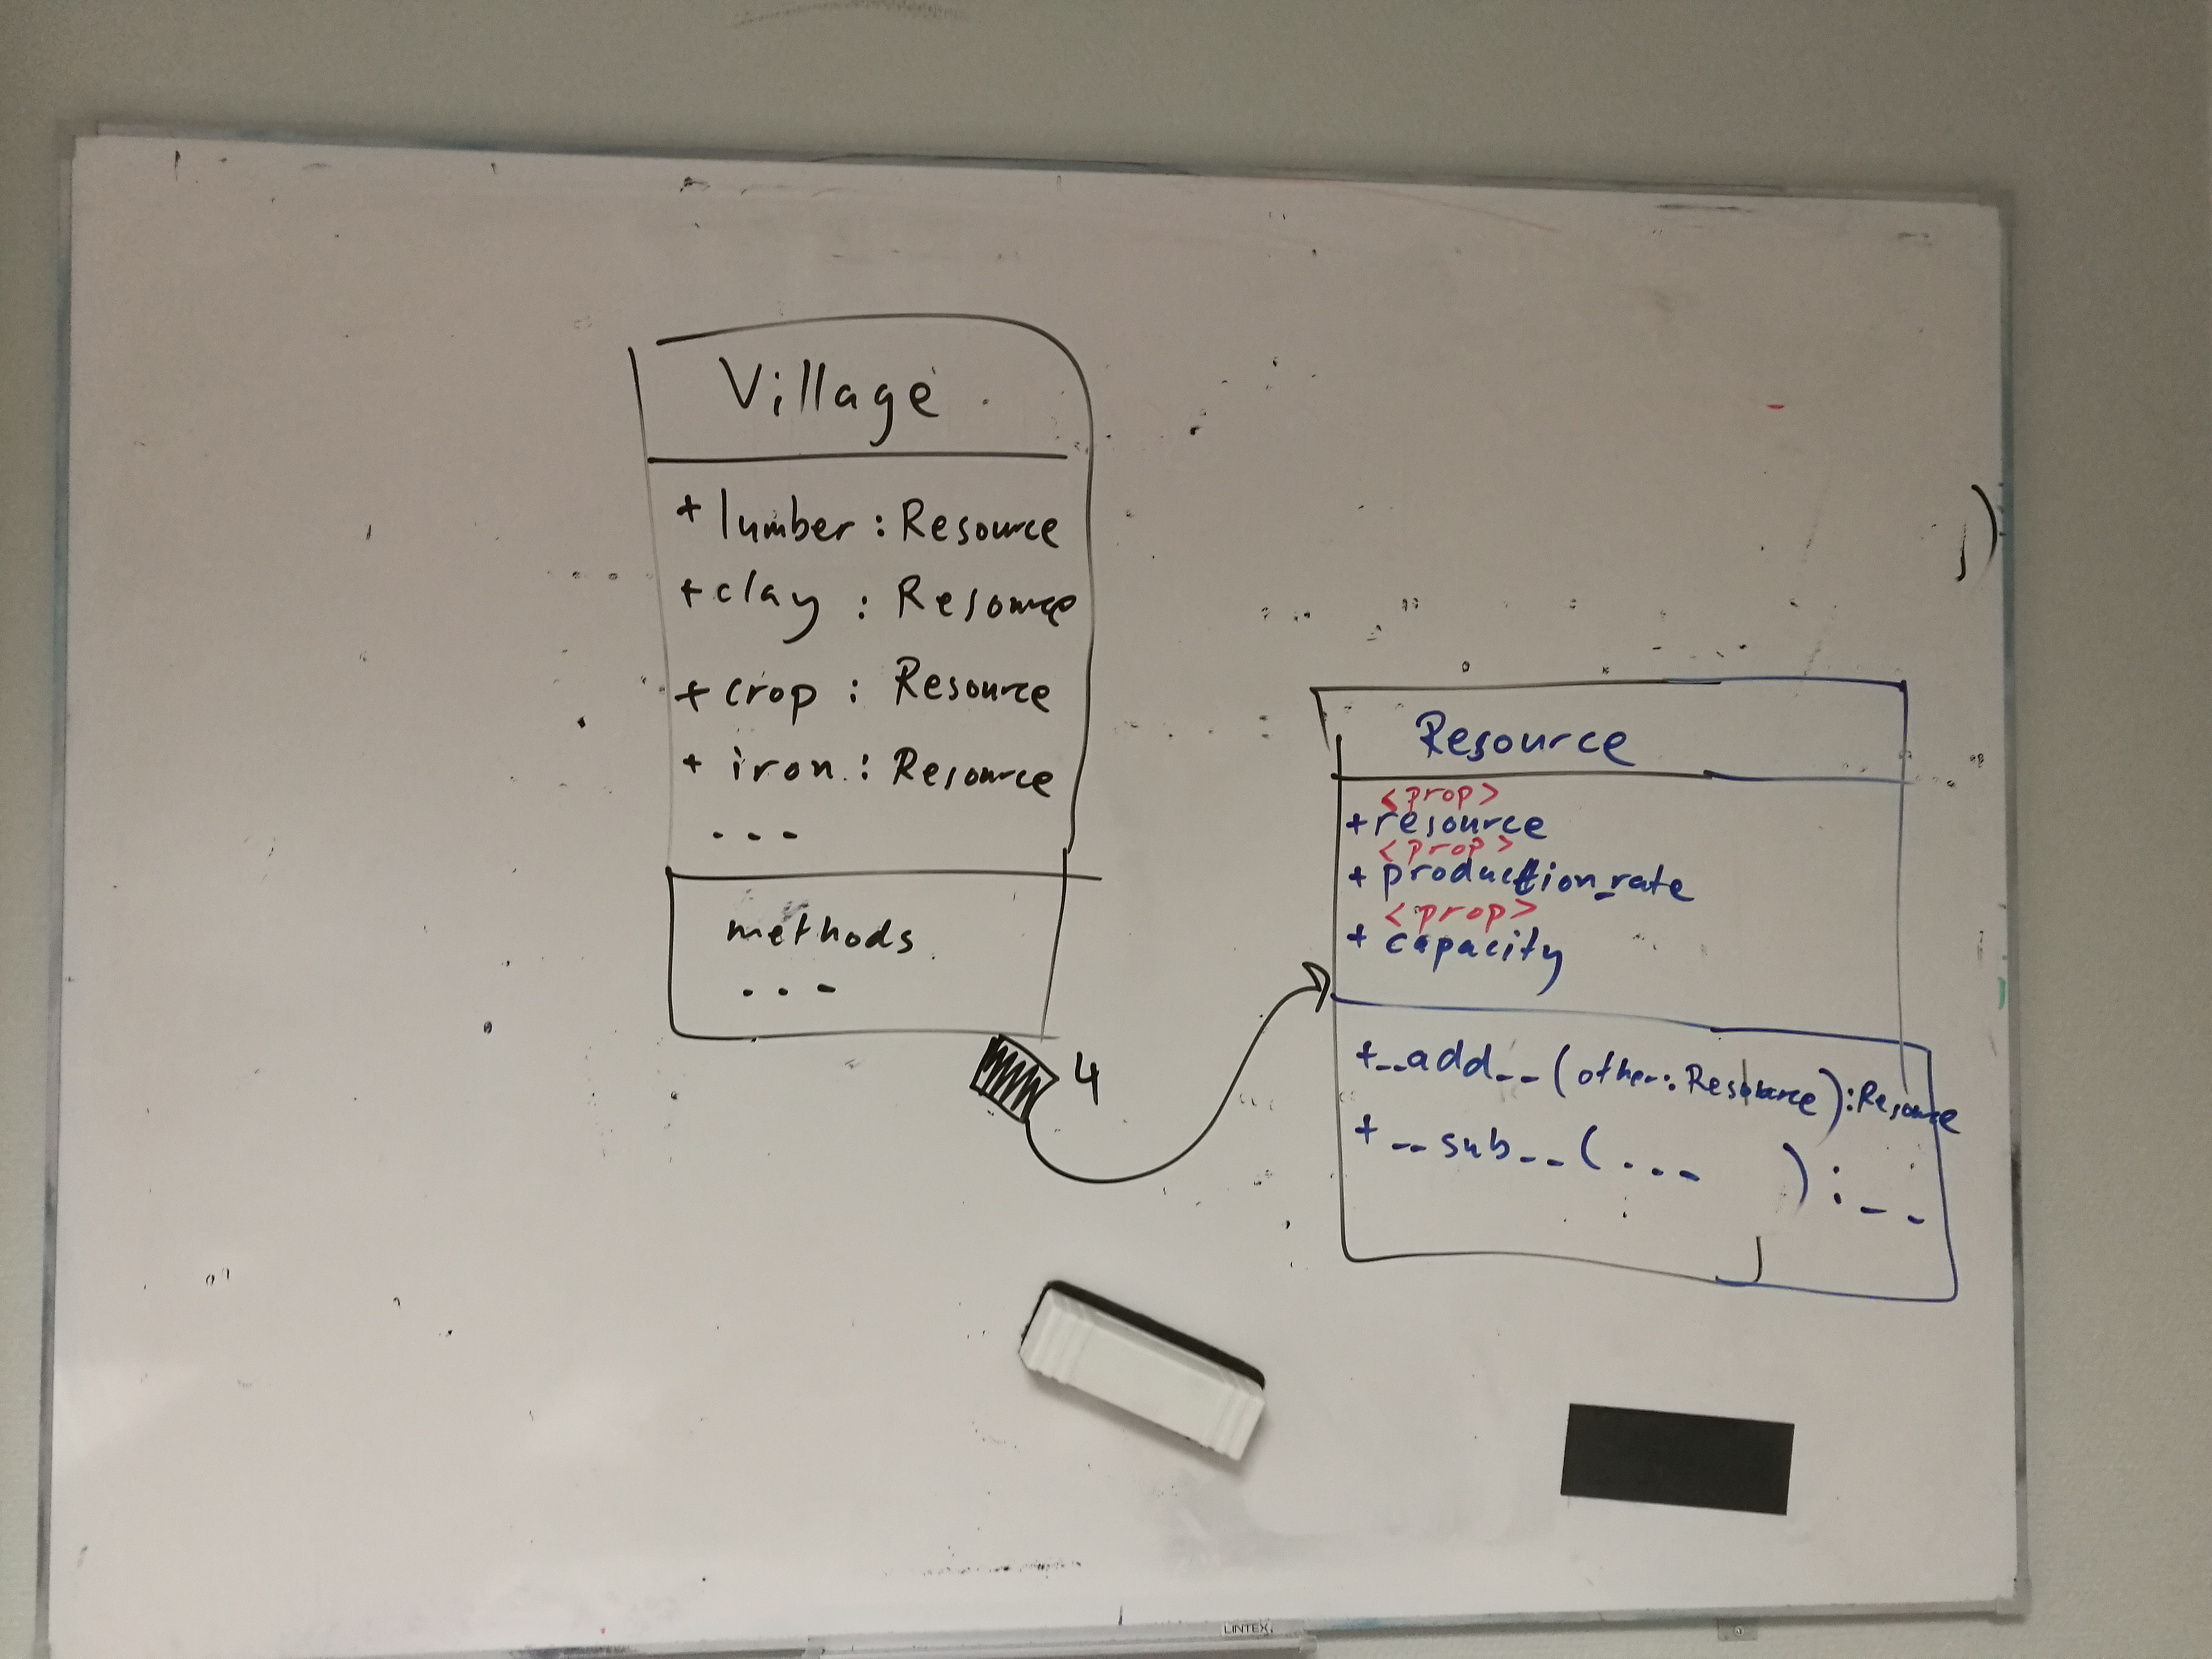 Village
+ lumber : Resource
+ clay : Resource
+ crop : Resource
+ iron : Resource
...
methods
...
4
Resource
<prop>
+ resource
<prop>
+ production_rate
<prop>
+ capacity
+ __add__ (other: Resource) : Resource
+ __sub__ ( ... ) : __
LINTEX